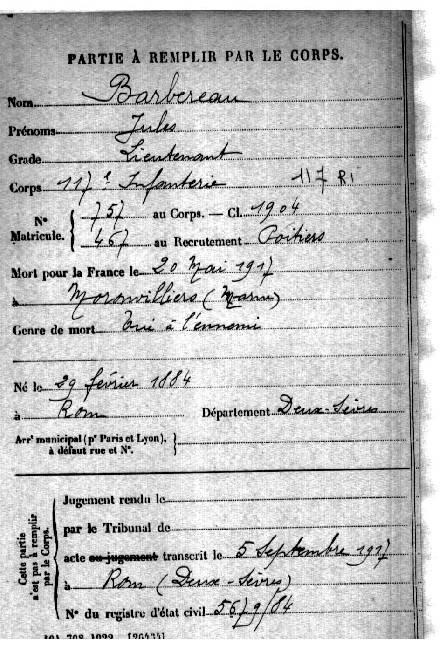 PARTIE À REMPLIR PAR LE CORPS.
Nom Barbereau
Prénoms Jules
Grade Lieutenant
Corps 117e Infanterie 117 RI
N° Matricule. { 757 au Corps. — Cl. 1904
467 au Recrutement Poitiers
Mort pour la France le 20 Mai 1917
à Moronvilliers (Marne)
Genre de mort Tué à l'ennemi
Né le 29 février 1884
à Rom Département Deux-Sèvres
Arrt municipal (pr Paris et Lyon), à défaut rue et N°. }
Cette partie n'est pas à remplir par le Corps.
Jugement rendu le
par le Tribunal de
acte ou jugement transcrit le 5 Septembre 1917
à Rom (Deux-Sèvres)
N° du registre d'état civil 5679/84